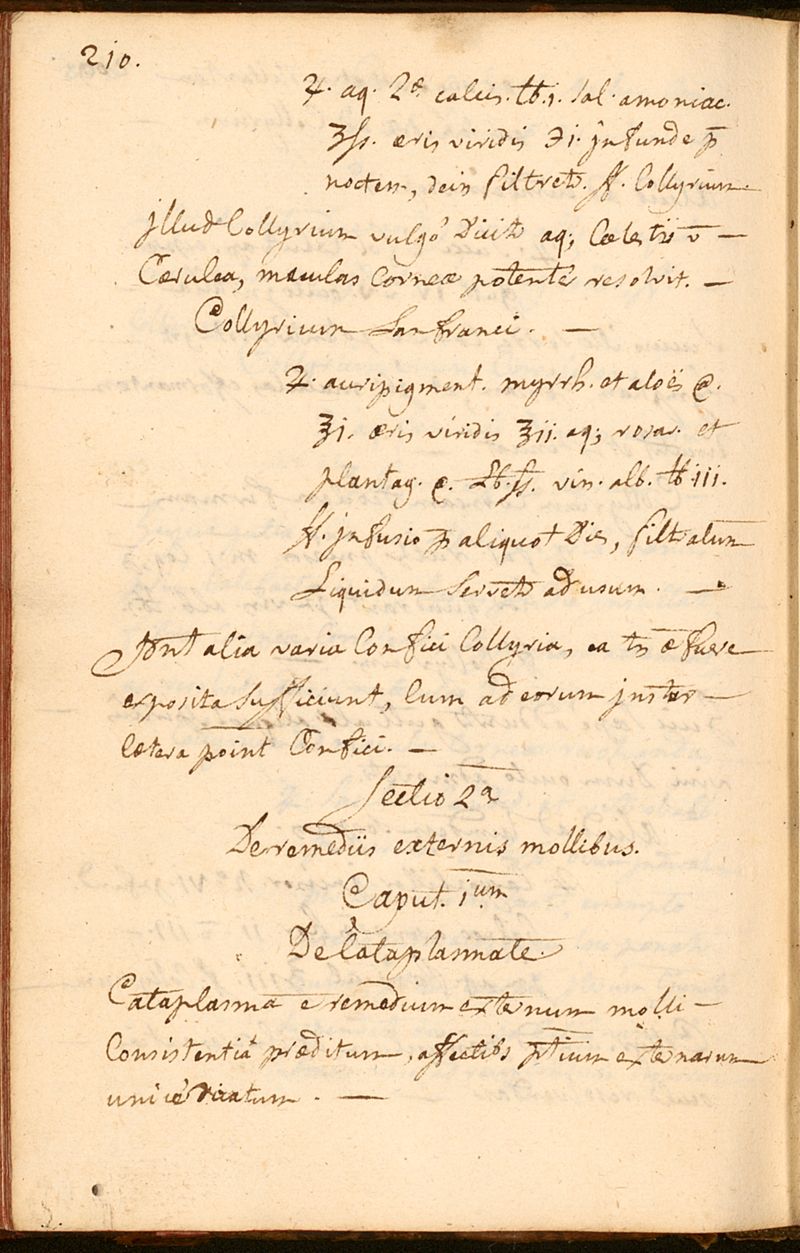 210.
♃. aq. 2æ calcis. ℔.j. sal. amoniac.
ʒſs. æris viridis ℈i. jnfunde p̄
noctem, dein filtret͛. ff. Collyrium
jllud Collyrium vulgò dicit͛ aq; Cælestis v̄
Cærulea, maculas Corneæ potentè resolvit. —
Collyrium Lanfranci. —
♃. auripigment. myrrh. et aloës
ʒj. æris viridis ʒii. aq; rosar. et
plantag. ℔.ſs. vin. alb. ℔ iii.
ff. jnfusio p̄ aliquot Dies, filtratum
Liquidum servet͛ ad usum. —
alia varia Confici Collyria, ea
exposita Sufficiunt, Cum ad eorum jnstar
Cætera point Confici. —
Sectio 2a
De remediis externis mollibus.
Caput. 1um
De Cataplasmate.
Cataplasma ē remedium externum molli
Consistentiâ præditum, affectibs ptium externarum
unicè dicatum. —